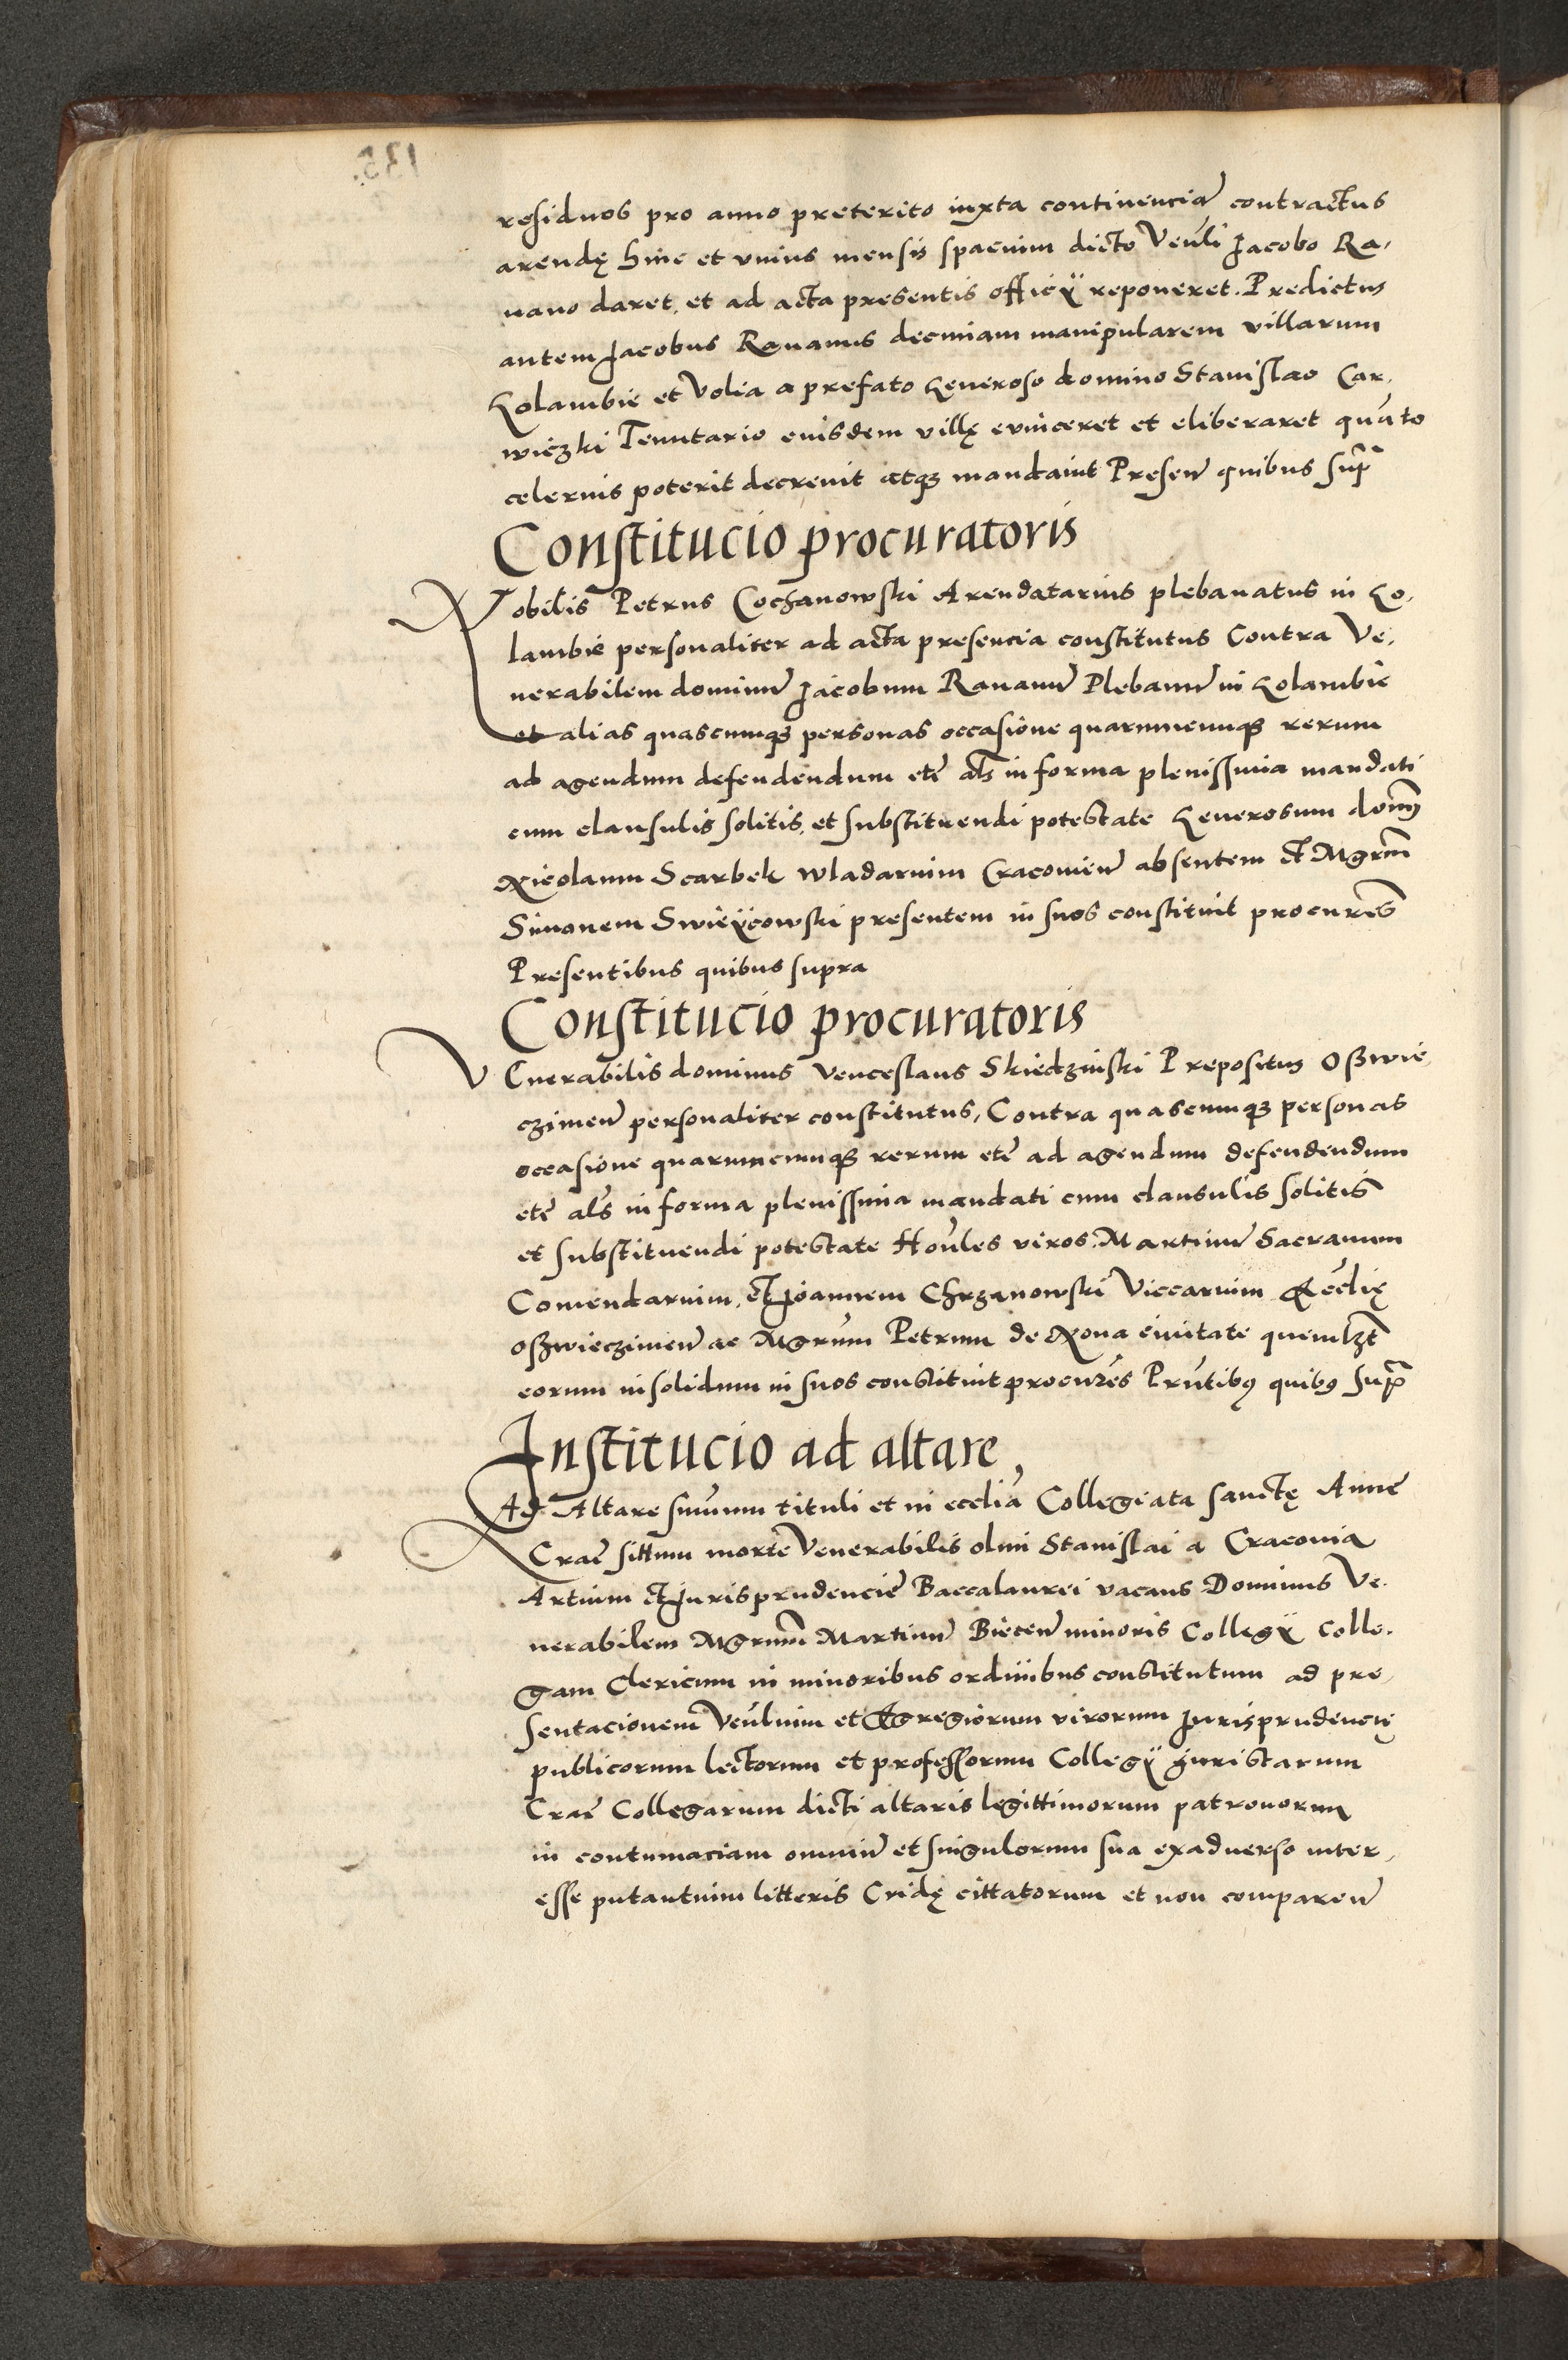 residuos pro anno preterito iuxta continencia contractus
arendę hinc et vnius mensis spacium dicto Venli Jacobo Ra,
uano daret, et ad acta presentis officÿ reponeret. Predictus
autem Jacobus Rauanus decimam manipularem villarum
Golambie et Volia a prefato Generoso domino Stanislao Car,
wiczki Tenutario eiusdem villę euinceret et eliberaret quāto
celerius poterit decreuit atqz mandauit Presen quibus sup
Constitucio procuratoris
Nobilis Petrus Cochanowski Arendatarius plebanatus in Go,
lambie personaliter ad acta presencia constitutus Contra Ve,
nerabilem dominu Jacobum Rauanu Plebanu in Golambie
et alias quascumqz personas occasione quarumcumqz rerum
ad agendum defendendum etc als in forma plenissima mandati
cum clausulis solitis, et substituendi potestate Generosum dom
Nicolaum Scarbek wladarium Cracouien absentem et Mgrm
Simonem Swieÿcowski presentem in suos constituit procures
Presentibus quibus supra
Constitucio procuratoris
VEnerabilis dominus Venceslaus Skiedzinski Prepositus Osswie
czimen personaliter constitutus, Contra quascumqz personas
occasione quarumcumqz rerum etc ad agendum defendendum
etc als in forma plenissima mandati cum clausulis solitis
et substituendi potestate Honles viros Martinu Sacranum
Comendarium, et Joannem Chrzanowski Viccarium Ecclię
Osswieczimen ac Mgrum Petrum de Noua ciuitate quemlzt
eorum insolidum in suos constituit procures Prntibꝫ quibꝫ sup
Institucio ad altare,
Ad Altare sumum tituli et in ecclia Collegiata sanctę Anne
Crac sittum morte Venerabilis olim Stanislai a Cracouia
Artium et Jurisprudencie Baccalaurei vacans Dominus Ve.
nerabilem Mgrum Martinu Biecen minoris Collegÿ Colle.
gam Clericum in minoribus ordinibus constitutum ad pre,
sentacionem Venlium et Egregiorum virorum Jurisprudencię
publicorum lectorum et professorum Collegÿ Juristarum
Crac Collegarum dicti altaris legittimorum patronorum
in contumaciam omniu et singulorum sua exaduerso inter,
esse putantium litteris Cridę cittatorum et non comparen
135.